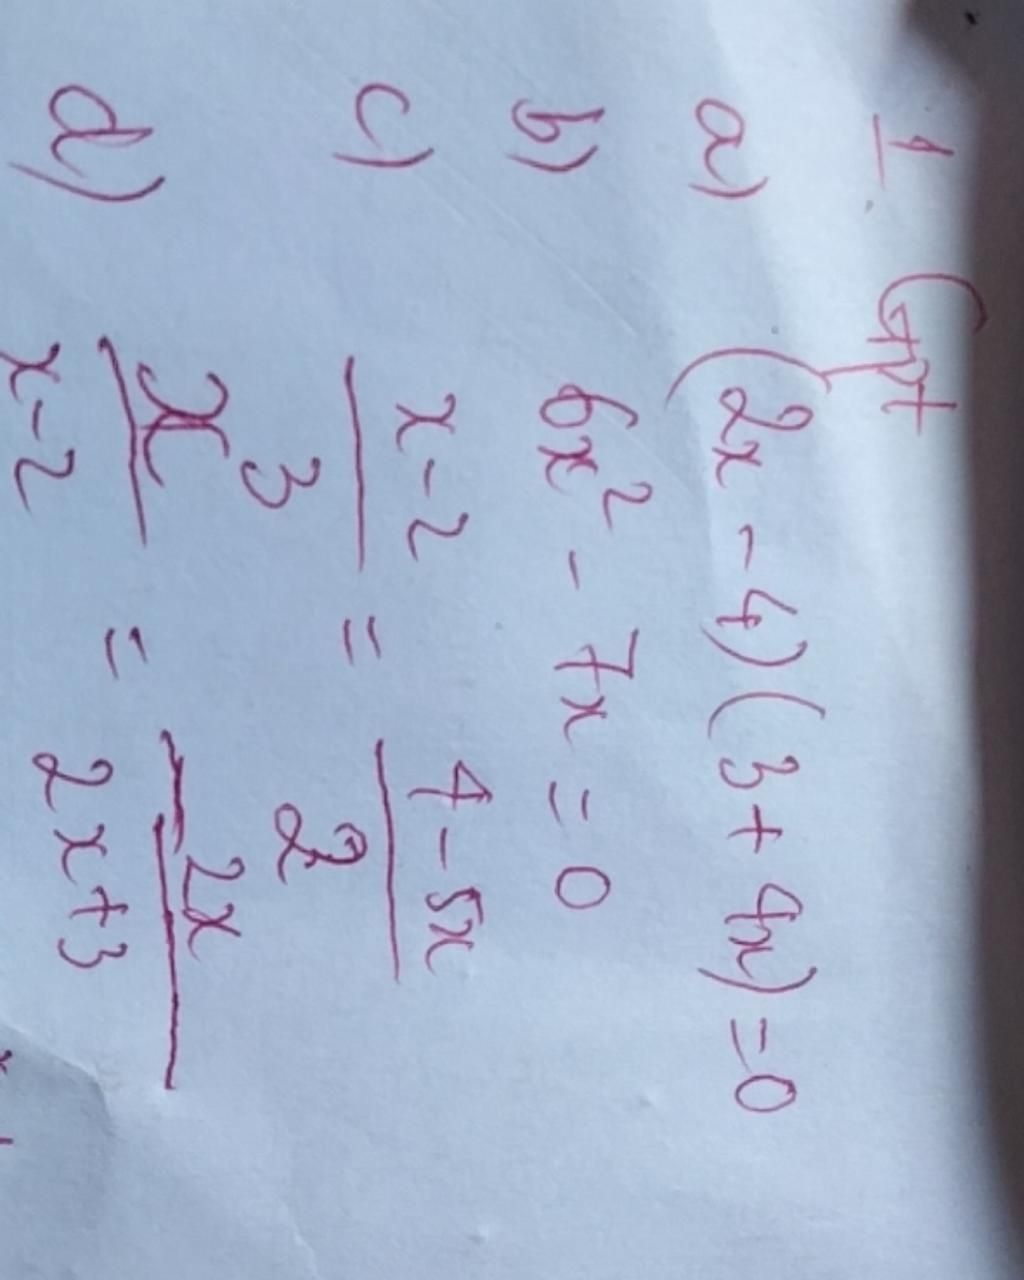 1 Gpt
a) (2x - 4)(3 + 4x) = 0
b) 6x² - 7x = 0
c) x-2/3 = 4-5x/2
d) x/x-2 = 2x/2x+3